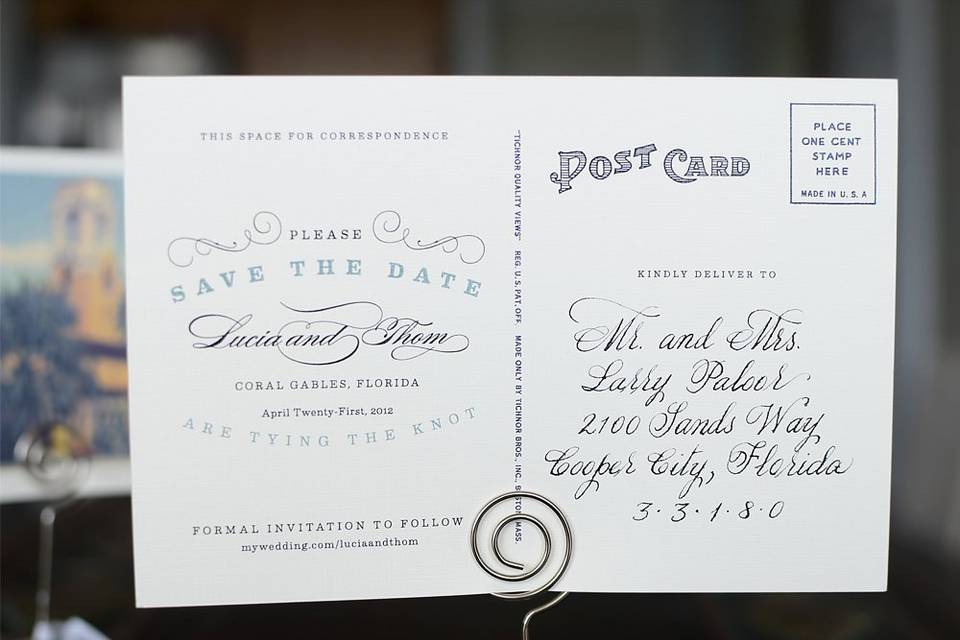 THIS SPACE FOR CORRESPONDENCE
PLEASE
SAVE THE DATE
Lucia and Thom
CORAL GABLES, FLORIDA
April Twenty-First, 2012
ARE TYING THE KNOT
FORMAL INVITATION TO FOLLOW
mywedding.com/luciaandthom
"TICHNOR QUALITY VIEWS" REG. U. S. PAT. OFF. MADE ONLY BY TICHNOR BROS., INC., BOSTON, MASS.
POST CARD
PLACE
ONE CENT
STAMP
HERE
MADE IN U. S. A
KINDLY DELIVER TO
Mr. and Mrs.
Larry Paloor
2100 Sands Way
Cooper City, Florida
3·3·1·8·0